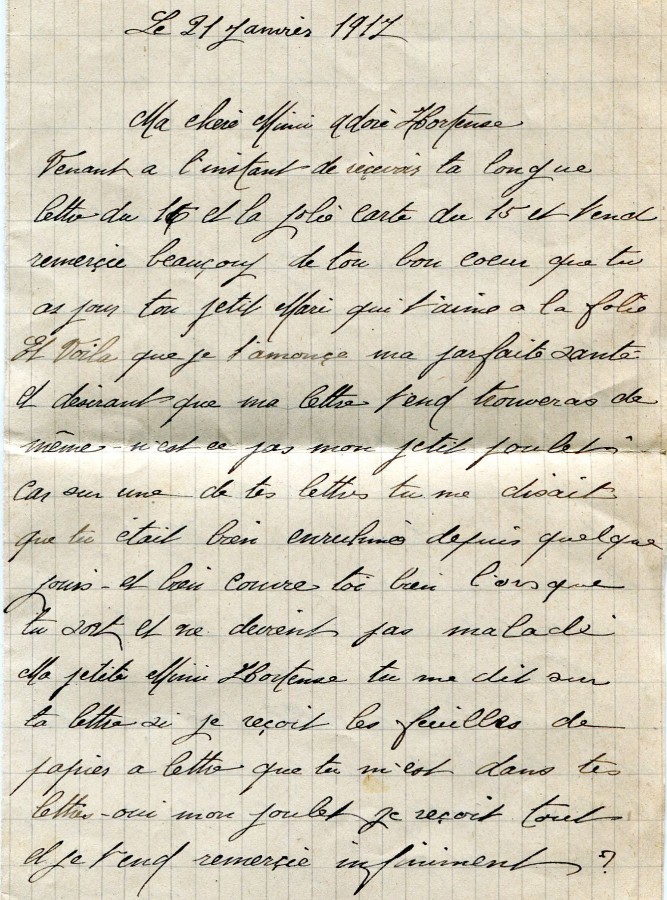 Le 21 Janvier 1917
Ma cheré Mimi adoré Hortense
Venant a l'instant de reçevoir ta longue
lettre du 16 et la jolie carte du 15 et t'end
remerçie beauçoup de ton bon coeur que tu
as pour ton petit Mari qui t'aime a la folie
Et Voila que je t'annonça ma parfaite santé
et désirant que ma lettre t'end trouveras de
même - n'est ce pas mon petit poulet -
car sur une de tes lettres tu me disait
que tu était bien enruhmé depuis quelque
jours - et bien couvre toi bien l'orsque
tu sort et ne devient pas maladé
Ma petite Mimi Hortense tu me dit sur
ta lettre si je reçoit les feuilles de
papier a lettre que tu m'est dans tes
lettres - oui mon poulet je reçoit tout
et je t'end remerçie infiniment ?